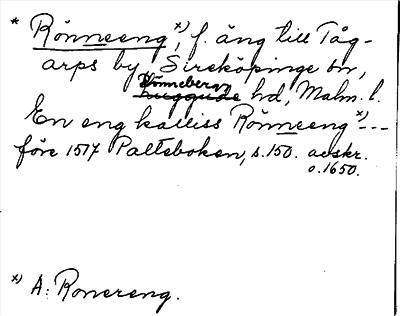 * Rönneeng x), f. äng till Tåg-
arps by, Sireköpinge sn,
Rönneberg
Luggude hd, Malm. l.
En eng kalliss Rönneeng x)---
före 1517 Palteboken, s. 150. avskr.
o. 1650.
x) A: Ronereng.